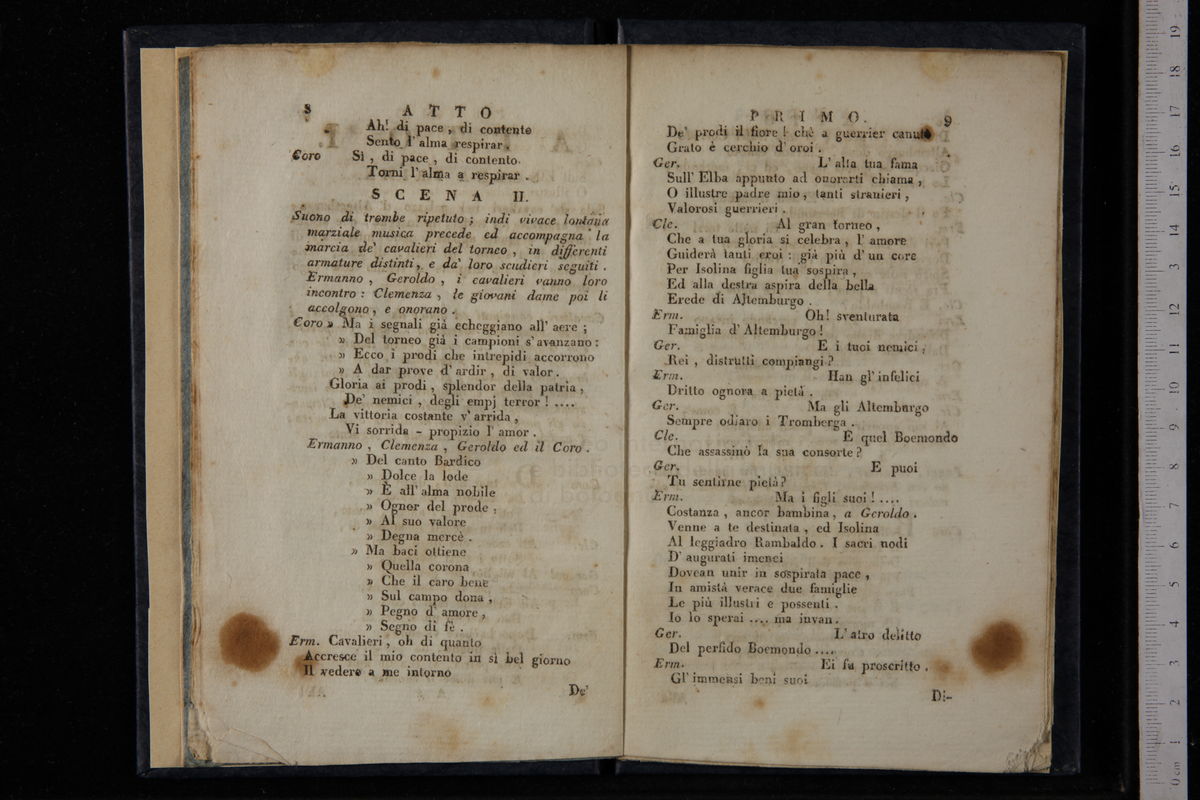 8 ATTO
Ah! di pace, di contento
Sento l'alma respirar.
Coro Sì, di pace, di contento.
Torni l'alma a respirar.
SCENA II.
Suono di trombe ripetuto; indi vivace lontana
marziale musica precede ed accompagna la
marcia de' cavalieri del torneo, in differenti
armature distinti, e da' loro scudieri seguiti.
Ermanno, Geroldo, i cavalieri vanno loro
incontro: Clemenza, le giovani dame poi li
accolgono, e onorano.
Coro » Ma i segnali già echeggiano all'aere;
» Del torneo già i campioni s'avanzano:
» Ecco i prodi che intrepidi accorrono
» A dar prove d'ardir, di valor.
Gloria ai prodi, splendor della patria,
De' nemici, degli empj terror! ....
La vittoria costante v'arrida,
Vi sorrida - propizio l'amor.
Ermanno, Clemenza, Geroldo ed il Coro.
» Del canto Bardico
» Dolce la lode
» È all'alma nobile
» Ognor del prode,
» Al suo valore
» Degna mercè.
» Ma baci ottiene
» Quella corona
» Che il caro bene
» Sul campo dona,
» Pegno d'amore,
» Segno di fè.
Erm. Cavalieri, oh di quanto
Accresce il mio contento in sì bel giorno
Il vedere a me intorno
De'
PRIMO. 9
De' prodi il fiore! chè a guerrier canuto
Grato è cerchio d'eroi.
Ger. L'alta tua fama
Sull'Elba appunto ad onorarti chiama,
O illustre padre mio, tanti stranieri,
Valorosi guerrieri.
Cle. Al gran torneo,
Che a tua gloria si celebra, l'amore
Guiderà tanti eroi: già più d'un core
Per Isolina figlia tua sospira,
Ed alla destra aspira della bella
Erede di Altemburgo.
Erm. Oh! sventurata
Famiglia d'Altemburgo!
Ger. E i tuoi nemici,
Rei, distrutti compiangi?
Erm. Han gl'infelici
Dritto ognora a pietà.
Ger. Ma gli Altemburgo
Sempre odiaro i Tromberga.
Cle. E quel Boemondo
Che assassinò la sua consorte?
Ger. E puoi
Tu sentirne pietà?
Erm. Ma i figli suoi! ....
Costanza, ancor bambina, a Geroldo.
Venne a te destinata, ed Isolina
Al leggiadro Rambaldo. I sacri nodi
D'augurati imenei
Dovean unir in sospirata pace,
In amistà verace due famiglie
Le più illustri e possenti.
Io lo sperai .... ma invan.
Ger. L'atro delitto
Del perfido Boemondo ....
Erm. Ei fu proscritto.
Gl'immensi beni suoi
Di-
0 cm 1 2 3 4 5 6 7 8 9 10 11 12 13 14 15 16 17 18 19